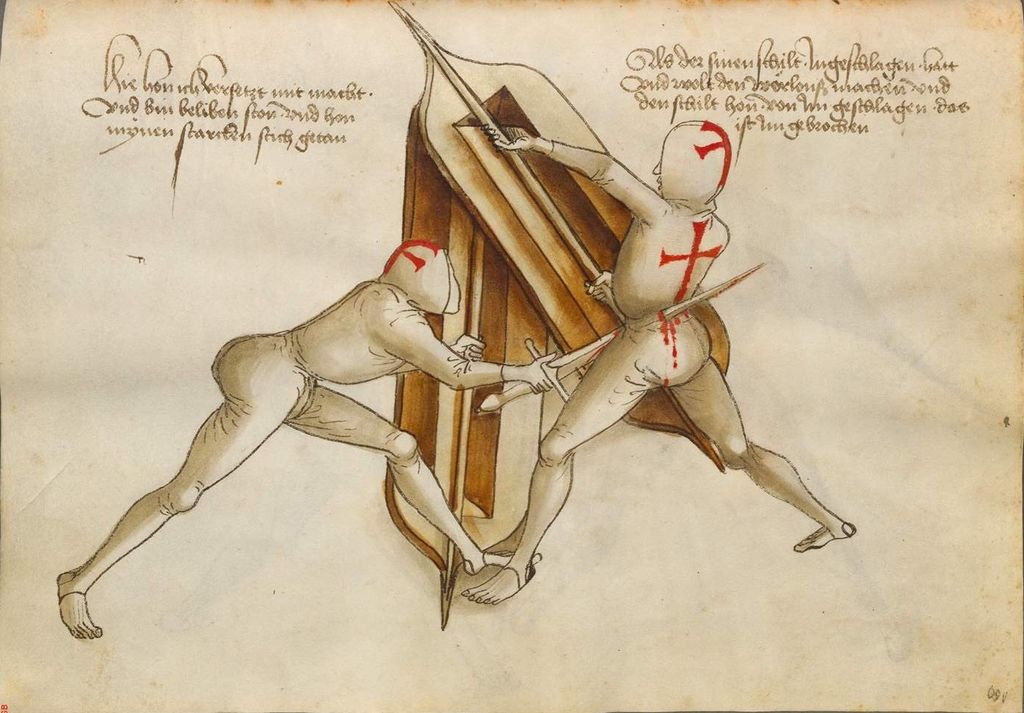 Hie hon ich versetzt mit macht
Vnd bin beliben ston vnd hon
mynen starcken stich getan
Als der sinen schilt Ingeschlagen hatt
Vnd wolt den machen vnd
den schilt hon von Im geschlagen das
ist Im gebrochen